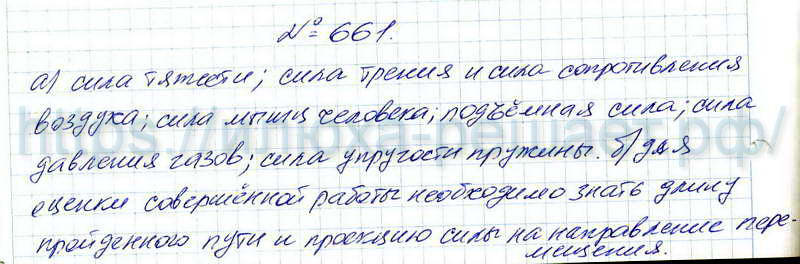 № 661.
а) сила тяжести; сила трения и сила сопротивления
воздуха; сила мышц человека; подъёмная сила; сила
давления газов; сила упругости пружины. б) для
оценки совершённой работы необходимо знать длину
пройденного пути и проекцию силы на направление пере-
мещения.